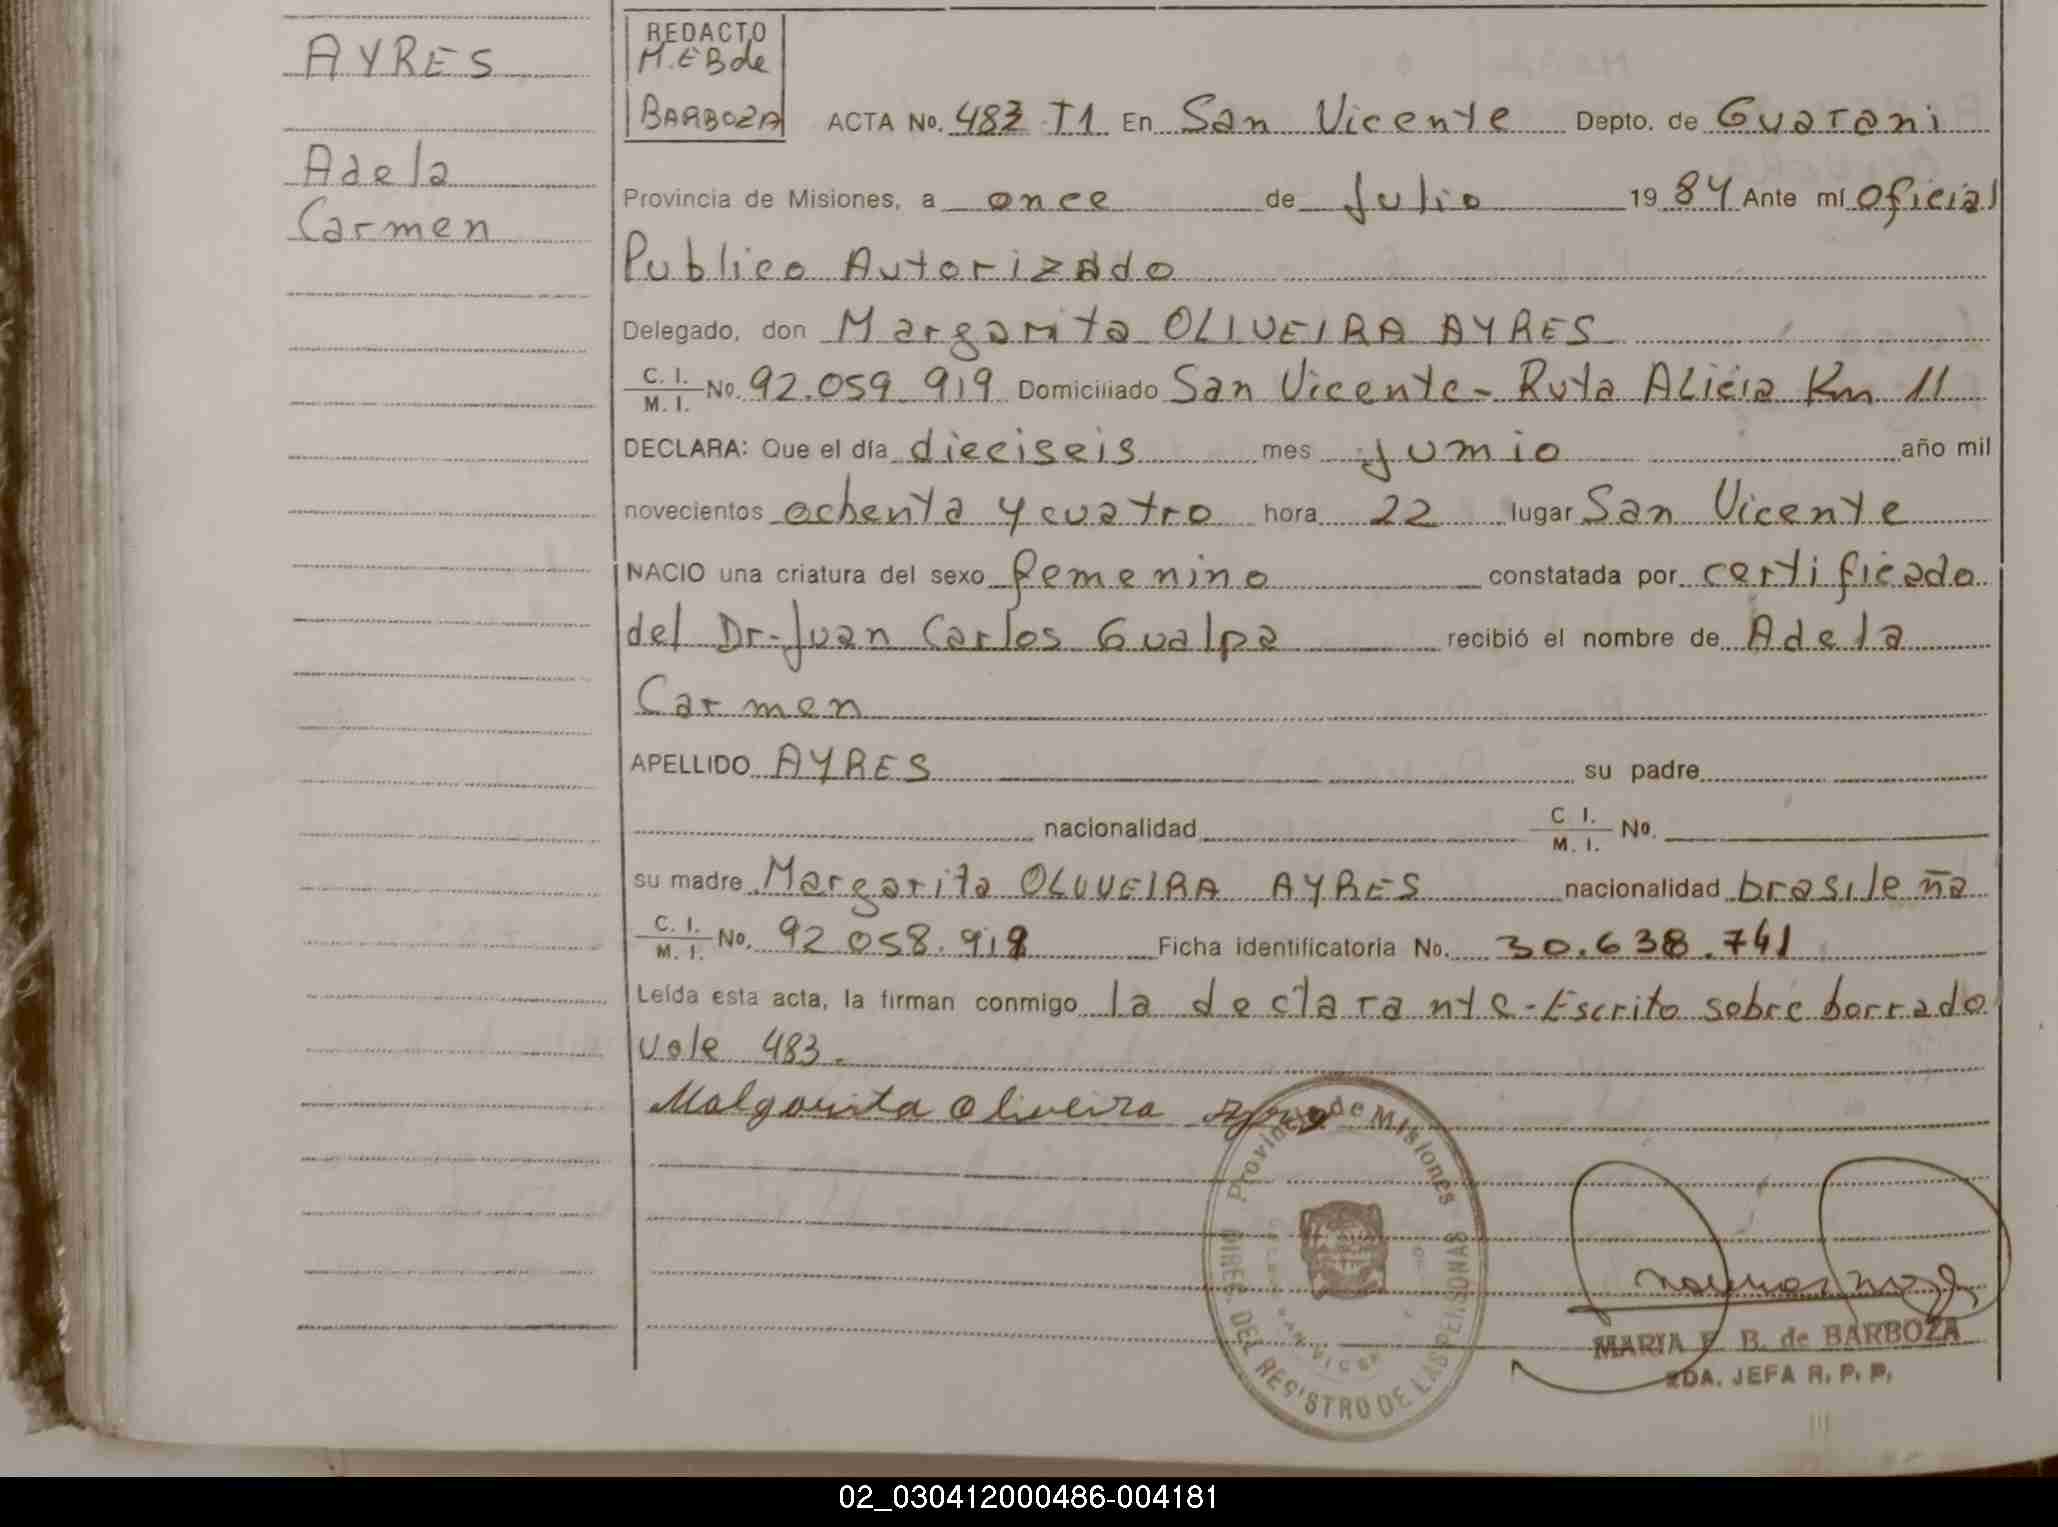 AYRES
Adela
Carmen
REDACTO
M.E B de
BARBOZA
ACTA No. 483 T1 En San Vicente Depto. de Guarani
Provincia de Misiones, a once de Julio 1984 Ante mí Oficial
Publico Autorizado
Delegado, don Margarita OLIVEIRA AYRES
C. I. / M. I. No. 92.059.919 Domiciliado San Vicente - Ruta Alicia Km 11
DECLARA: Que el día dieciseis mes junio año mil
novecientos ochenta y cuatro hora 22 lugar San Vicente
NACIO una criatura del sexo femenino constatada por certificado
del Dr. Juan Carlos Gualpa recibió el nombre de Adela
Carmen
APELLIDO AYRES su padre
nacionalidad C. I. / M. I. No.
su madre Margarita OLIVEIRA AYRES nacionalidad brasileña
C. I. / M. I. No. 92.058.919 Ficha identificatoria No. 30.638.741
Leída esta acta, la firman conmigo la declarante - Escrito sobre borrado
vale 483.
Malgarita Oliveira
Provincia de Misiones
DIREC. DEL REGISTRO DE LAS PERSONAS
MARIA E. B. de BARBOZA
2DA. JEFA R. P. P.
02_030412000486-004181